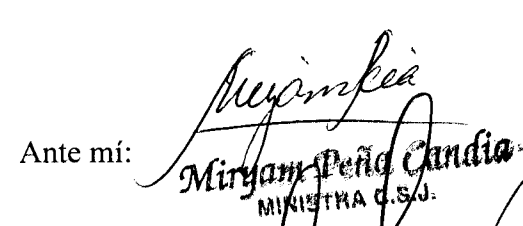 Ante mí:
Miryam Peña Candia
MINISTRA C.S.J.